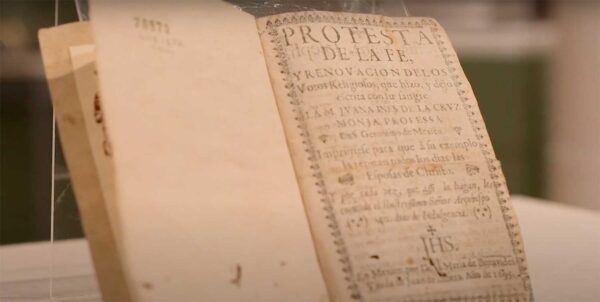 PROTESTA
DE LA FE,
Y RENOVACION DE LOS
Votos Religiosos, que hizo, y dejo
escrita con su sangre
LA M. IVANA INES DE LA CRVZ
MONJA PROFESSA
En S. Geronimo de Mexico.
Imprimese para que à su exemplo
la repitan todos los dias las
Esposas de Christo.
Por cada vez, que assi la hagan, les
concede el Señor Arçobispo
dias de Indulgencia.
JHS.
En Mexico: por Maria de Benavides
Viuda de Juan de Año de